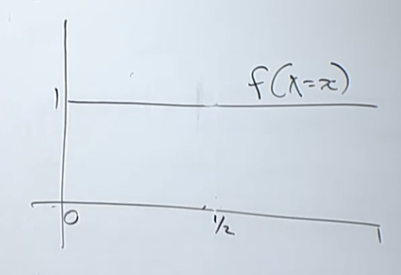 f(X=x)
1
0
1/2
1